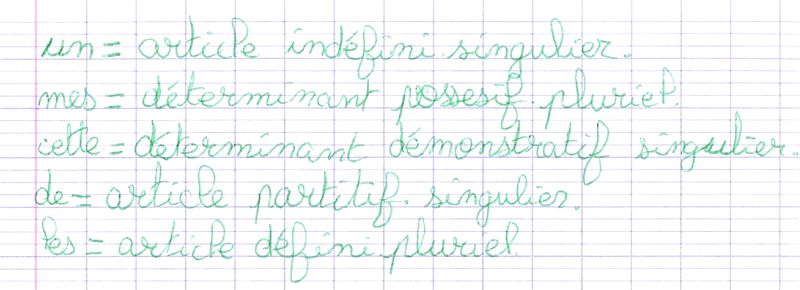 un = article indéfini singulier.
mes = déterminant possesif pluriel.
cette = déterminant démonstratif singulier.
de = article partitif singulier.
les = article défini pluriel